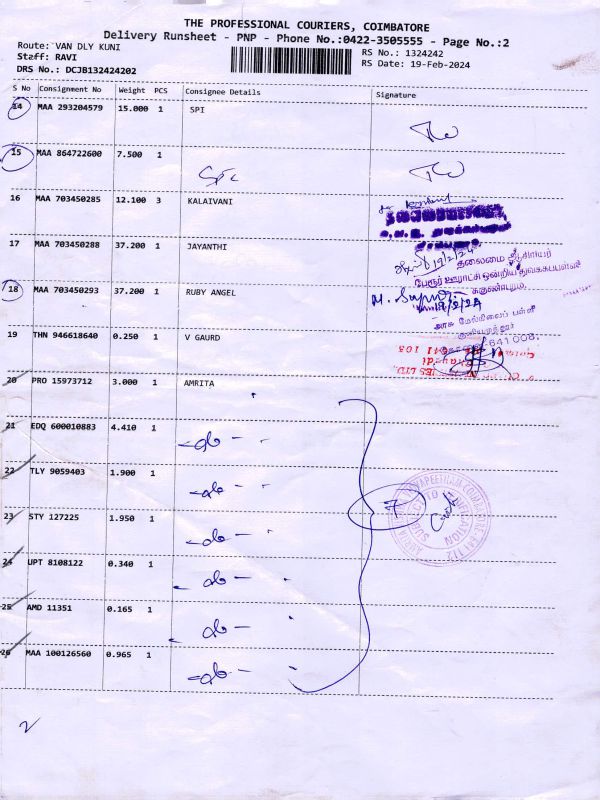 THE PROFESSIONAL COURIERS, COIMBATORE
Delivery Runsheet - PNP - Phone No.:0422-3505555 - Page No.:2
Route: VAN DLY KUNI
Staff: RAVI
DRS No.: DCJB132424202
RS No.: 1324242
RS Date: 19-Feb-2024
S No Consignment No Weight PCS Consignee Details Signature
14 MAA 293204579 15.000 1 SPI
15 MAA 864722600 7.500 1
16 MAA 703450285 12.100 3 KALAIVANI
17 MAA 703450288 37.200 1 JAYANTHI
19/2/24
தலைமை ஆசிரியர்
பேரூர் ஊராட்சி ஒன்றிய துவக்கப்பள்ளி
18 MAA 703450293 37.200 1 RUBY ANGEL
19/2/24
அரசு மேல்நிலைப் பள்ளி
641 008.
19 THN 946618640 0.250 1 V GAURD
20 PRO 15973712 3.000 1 AMRITA
21 EDQ 600010883 4.410 1 -do-
22 TLY 9059403 1.900 1 -do-
23 STY 127225 1.950 1 -do-
7
24 UPT 8108122 0.340 1 -do-
25 AMD 11351 0.165 1 -do-
26 MAA 100126560 0.965 1 -do-
2